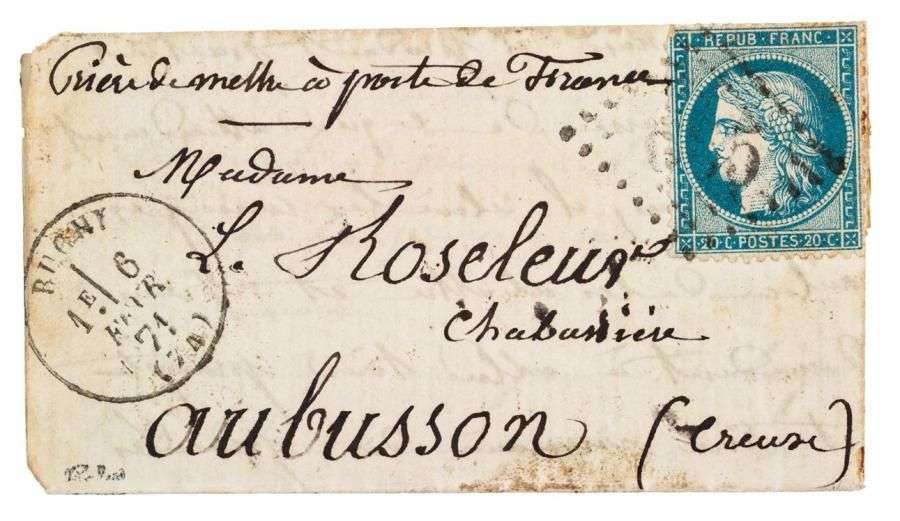 Prière de mettre à poste de France
REPUB. FRANC.
Madame
L. Roseleur
Chabassière
aubusson (Creuse)
20·C·POSTES·20·C
1E 6
FEVR.
71
(74)